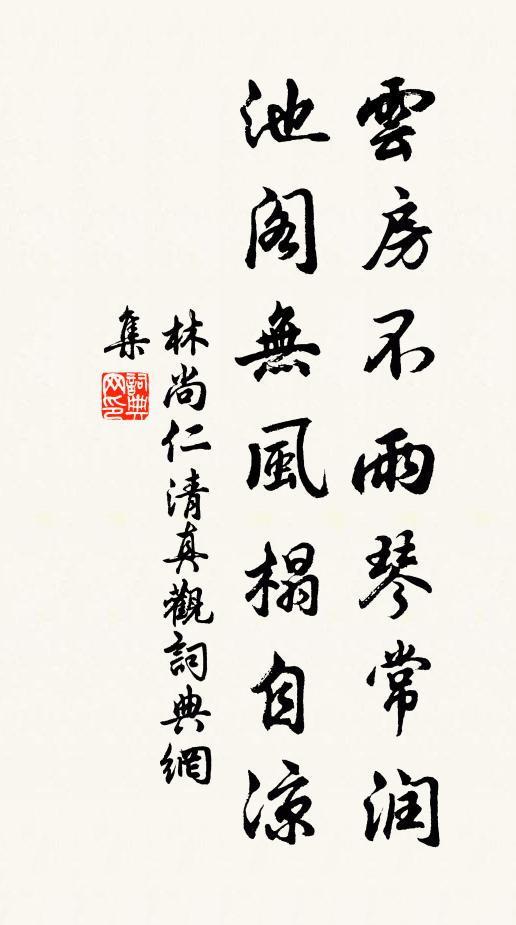 雲房不雨琴常润
池阁無風榻自凉
林尚仁清真觀詞典網
集
詞典
网印